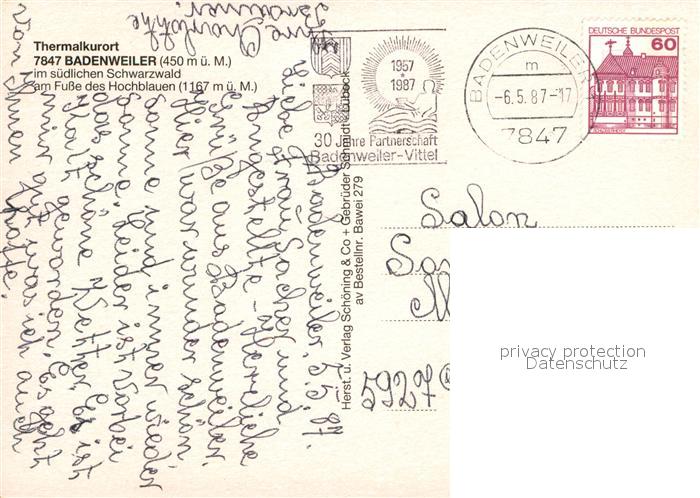 Thermalkurort
7847 BADENWEILER (450 m ü. M.)
im südlichen Schwarzwald
am Fuße des Hochblauen (1167 m ü. M.)
1957
1987
30 Jahre Partnerschaft
Badenweiler-Vittel
BADENWEILER 1
m
-6.5.87-17
7847
DEUTSCHE BUNDESPOST
60
Badenweiler, 5.5.87.
Liebe Frau Sacher und
Angestellte - Herzliche
Grüße aus Badenweiler.
Hier war wunderschön
Sonne und immer wieder
Sonne. Leider ist vorbei
das schöne Wetter. Es ist
kalt geworden. Es geht
mir gut was ich auch
von Ihnen hoffe.
Ihre Charlotte
Herst. u. Verlag Schöning & Co + Gebrüder Schmidt, Lübeck
av Bestellnr. Bawei 279
Salon
5927
privacy protection
Datenschutz